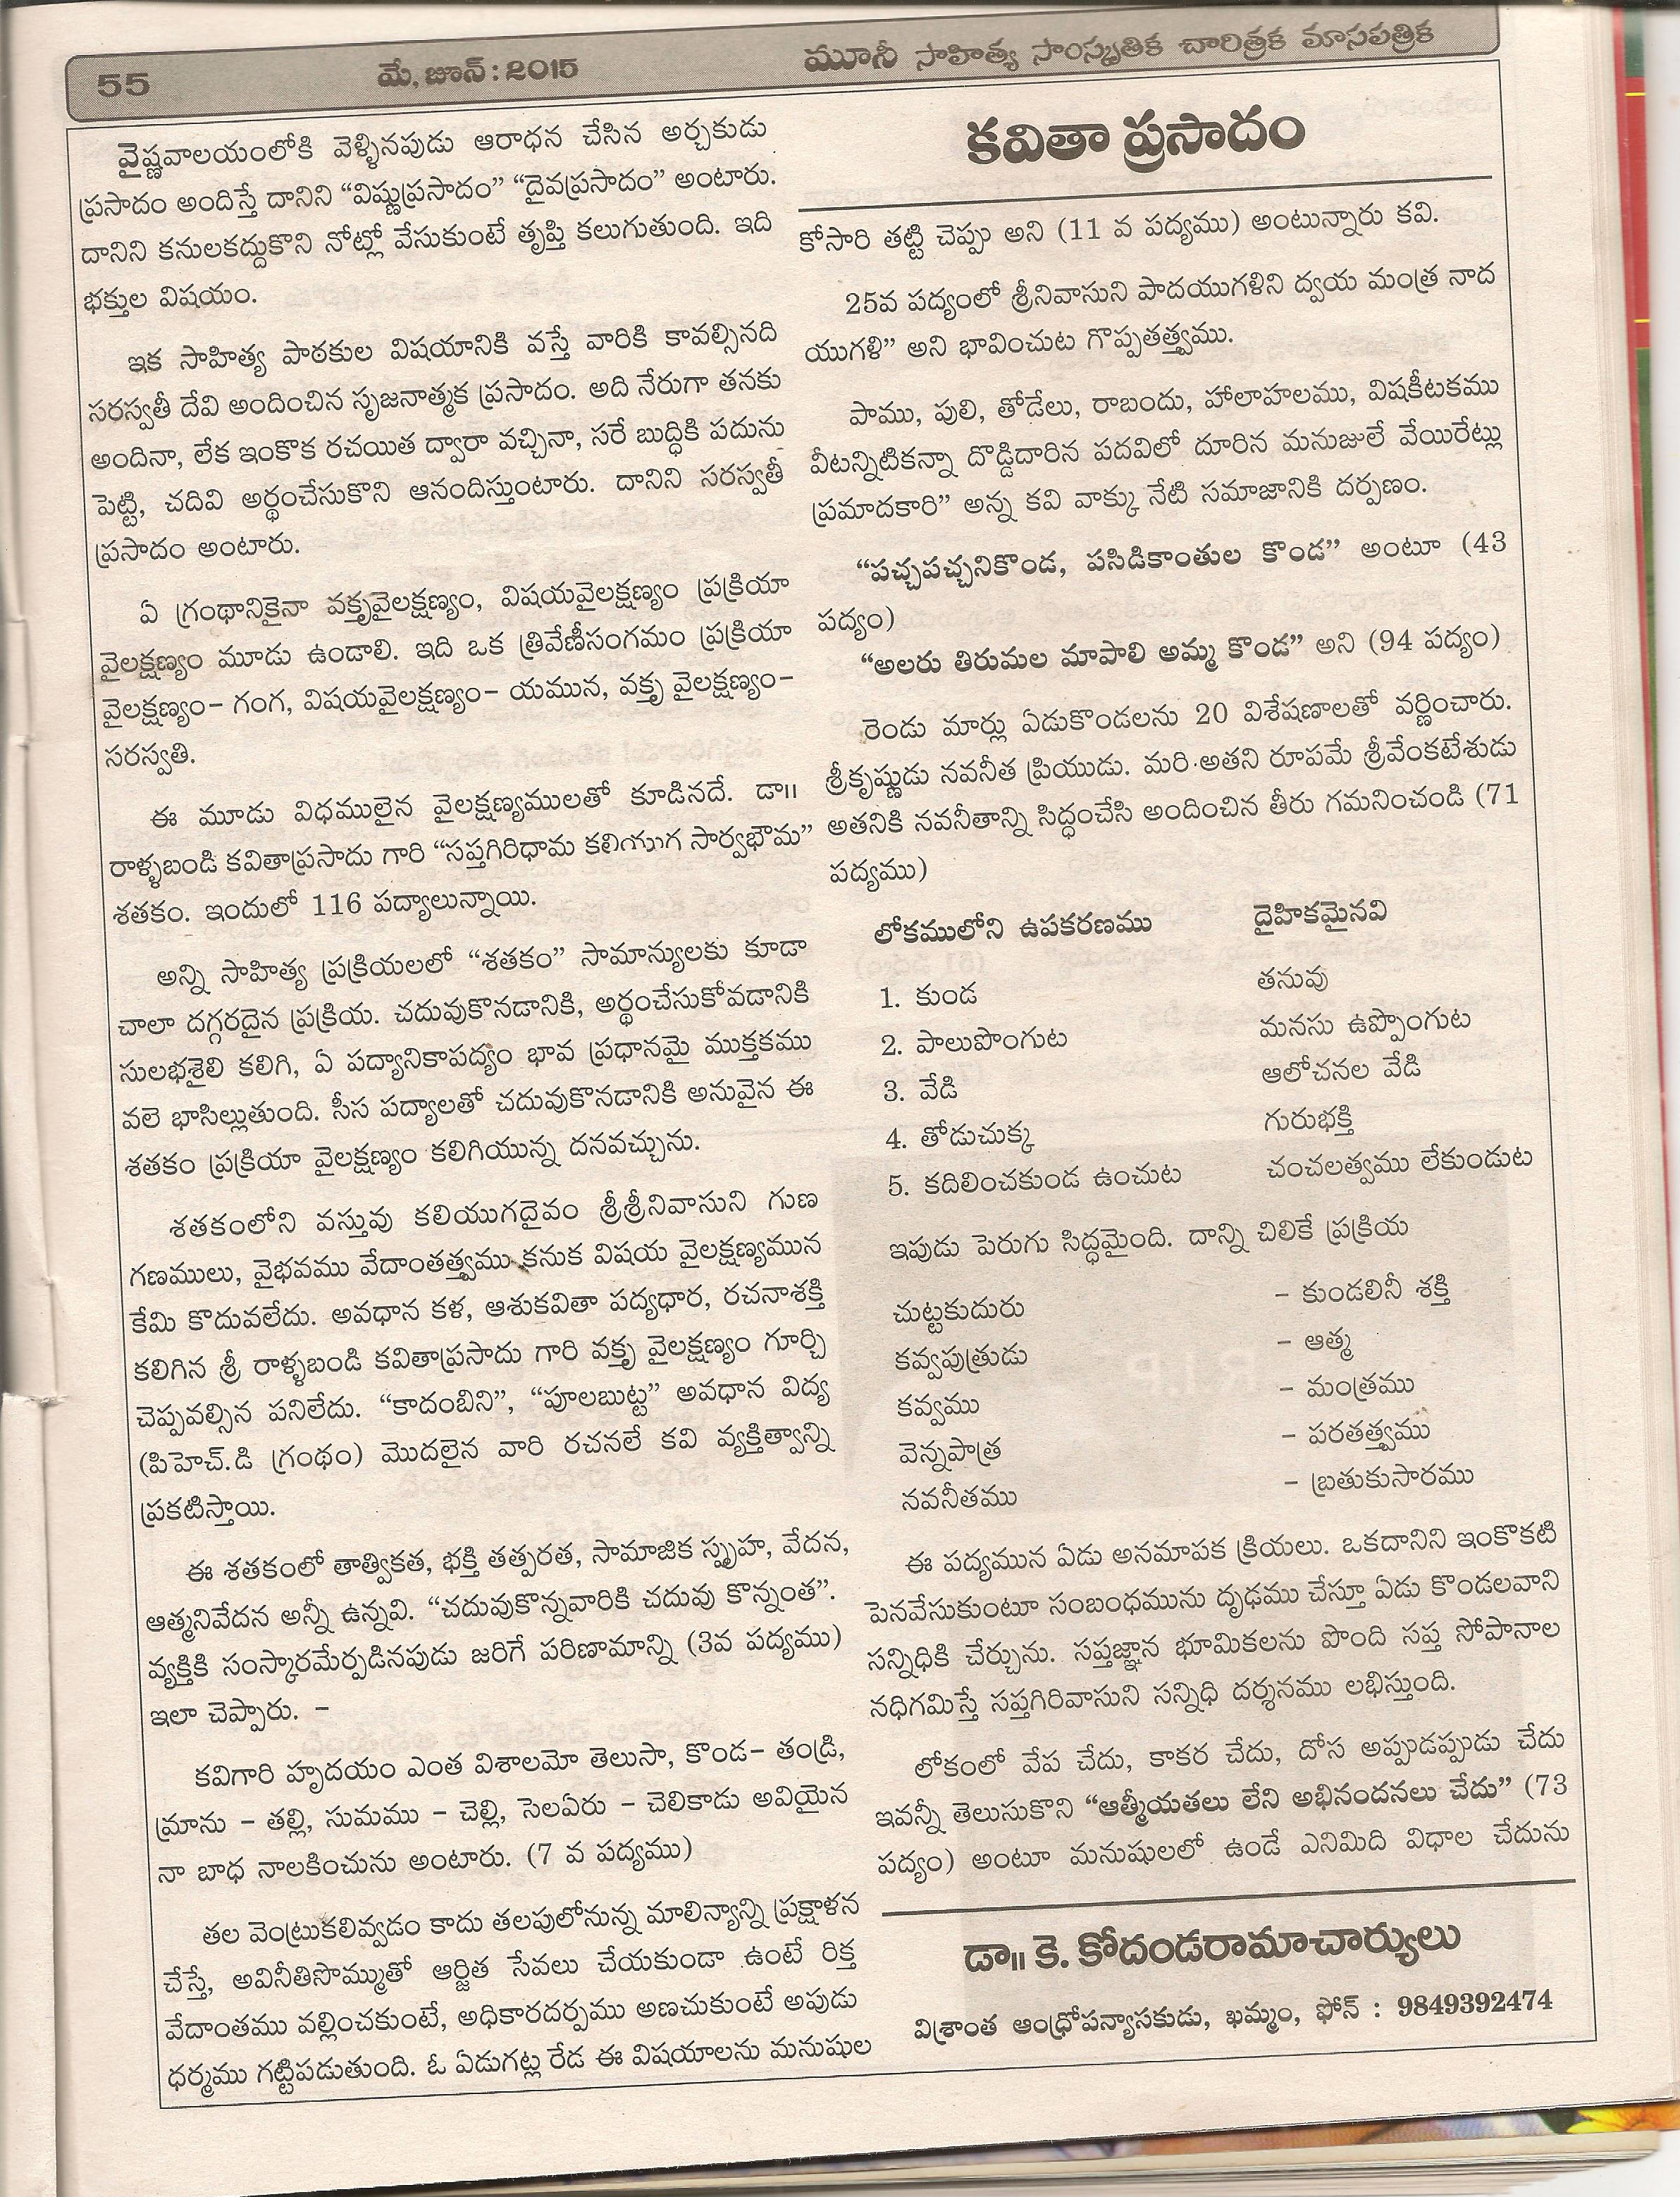 55
మే, జూన్ : 2015
మూసీ సాహిత్య సాంస్కృతిక చారిత్రక మాసపత్రిక
వైష్ణవాలయంలోకి వెళ్ళినపుడు ఆరాధన చేసిన అర్చకుడు
ప్రసాదం అందిస్తే దానిని “విష్ణుప్రసాదం” “దైవప్రసాదం” అంటారు.
దానిని కనులకద్దుకొని నోట్లో వేసుకుంటే తృప్తి కలుగుతుంది. ఇది
భక్తుల విషయం.
ఇక సాహిత్య పాఠకుల విషయానికి వస్తే వారికి కావల్సినది
సరస్వతీ దేవి అందించిన సృజనాత్మక ప్రసాదం. అది నేరుగా తనకు
అందినా, లేక ఇంకొక రచయిత ద్వారా వచ్చినా, సరే బుద్ధికి పదును
పెట్టి, చదివి అర్థంచేసుకొని ఆనందిస్తుంటారు. దానిని సరస్వతీ
ప్రసాదం అంటారు.
ఏ గ్రంథానికైనా వక్తృవైలక్షణ్యం, విషయవైలక్షణ్యం ప్రక్రియా
వైలక్షణ్యం మూడు ఉండాలి. ఇది ఒక త్రివేణీసంగమం ప్రక్రియా
వైలక్షణ్యం– గంగ, విషయవైలక్షణ్యం– యమున, వక్తృ వైలక్షణ్యం–
సరస్వతి.
ఈ మూడు విధములైన వైలక్షణ్యములతో కూడినదే. డా॥
రాళ్ళబండి కవితాప్రసాదు గారి “సప్తగిరిధామ కలియుగ సార్వభౌమ”
శతకం. ఇందులో 116 పద్యాలున్నాయి.
అన్ని సాహిత్య ప్రక్రియలలో “శతకం” సామాన్యులకు కూడా
చాలా దగ్గరదైన ప్రక్రియ. చదువుకొనడానికి, అర్థంచేసుకోవడానికి
సులభశైలి కలిగి, ఏ పద్యానికాపద్యం భావ ప్రధానమై ముక్తకము
వలె భాసిల్లుతుంది. సీస పద్యాలతో చదువుకొనడానికి అనువైన ఈ
శతకం ప్రక్రియా వైలక్షణ్యం కలిగియున్న దనవచ్చును.
శతకంలోని వస్తువు కలియుగదైవం శ్రీశ్రీనివాసుని గుణ
గణములు, వైభవము వేదాంతత్త్వము కనుక విషయ వైలక్షణ్యమున
కేమి కొదువలేదు. అవధాన కళ, ఆశుకవితా పద్యధార, రచనాశక్తి
కలిగిన శ్రీ రాళ్ళబండి కవితాప్రసాదు గారి వక్తృ వైలక్షణ్యం గూర్చి
చెప్పవల్సిన పనిలేదు. “కాదంబిని”, “పూలబుట్ట” అవధాన విద్య
(పిహెచ్.డి గ్రంథం) మొదలైన వారి రచనలే కవి వ్యక్తిత్వాన్ని
ప్రకటిస్తాయి.
ఈ శతకంలో తాత్వికత, భక్తి తత్పరత, సామాజిక స్పృహ, వేదన,
ఆత్మనివేదన అన్నీ ఉన్నవి. “చదువుకొన్నవారికి చదువు కొన్నంత”.
వ్యక్తికి సంస్కారమేర్పడినపుడు జరిగే పరిణామాన్ని (3వ పద్యము)
ఇలా చెప్పారు. –
కవిగారి హృదయం ఎంత విశాలమో తెలుసా, కొండ– తండ్రి,
మ్రాను – తల్లి, సుమము – చెల్లి, సెలఏరు – చెలికాడు అవియైన
నా బాధ నాలకించును అంటారు. (7 వ పద్యము)
తల వెంట్రుకలివ్వడం కాదు తలపులోనున్న మాలిన్యాన్ని ప్రక్షాళన
చేస్తే, అవినీతిసొమ్ముతో ఆర్జిత సేవలు చేయకుండా ఉంటే రిక్త
వేదాంతము వల్లించకుంటే, అధికారదర్పము అణచుకుంటే అపుడు
ధర్మము గట్టిపడుతుంది. ఓ ఏడుగట్ల రేడ ఈ విషయాలను మనుషుల
కవితా ప్రసాదం
కోసారి తట్టి చెప్పు అని (11 వ పద్యము) అంటున్నారు కవి.
25వ పద్యంలో శ్రీనివాసుని పాదయుగళిని ద్వయ మంత్ర నాద
యుగళి” అని భావించుట గొప్పతత్త్వము.
పాము, పులి, తోడేలు, రాబందు, హాలాహలము, విషకీటకము
వీటన్నిటికన్నా దొడ్డిదారిన పదవిలో దూరిన మనుజులే వేయిరేట్లు
ప్రమాదకారి” అన్న కవి వాక్కు నేటి సమాజానికి దర్పణం.
“పచ్చపచ్చనికొండ, పసిడికాంతుల కొండ” అంటూ (43
పద్యం)
“అలరు తిరుమల మాపాలి అమ్మ కొండ” అని (94 పద్యం)
రెండు మార్లు ఏడుకొండలను 20 విశేషణాలతో వర్ణించారు.
శ్రీకృష్ణుడు నవనీత ప్రియుడు. మరి అతని రూపమే శ్రీవేంకటేశుడు
అతనికి నవనీతాన్ని సిద్ధంచేసి అందించిన తీరు గమనించండి (71
పద్యము)
లోకములోని ఉపకరణము దైహికమైనవి
1. కుండ తనువు
2. పాలుపొంగుట మనసు ఉప్పొంగుట
3. వేడి ఆలోచనల వేడి
4. తోడుచుక్క గురుభక్తి
5. కదిలించకుండ ఉంచుట చంచలత్వము లేకుండుట
ఇపుడు పెరుగు సిద్ధమైంది. దాన్ని చిలికే ప్రక్రియ
చుట్టకుదురు – కుండలినీ శక్తి
కవ్వపుత్రుడు – ఆత్మ
కవ్వము – మంత్రము
వెన్నపాత్ర – పరతత్త్వము
నవనీతము – బ్రతుకుసారము
ఈ పద్యమున ఏడు అనమాపక క్రియలు. ఒకదానిని ఇంకొకటి
పెనవేసుకుంటూ సంబంధమును దృఢము చేస్తూ ఏడు కొండలవాని
సన్నిధికి చేర్చును. సప్తజ్ఞాన భూమికలను పొంది సప్త సోపానాల
నధిగమిస్తే సప్తగిరివాసుని సన్నిధి దర్శనము లభిస్తుంది.
లోకంలో వేప చేదు, కాకర చేదు, దోస అప్పుడప్పుడు చేదు
ఇవన్నీ తెలుసుకొని “ఆత్మీయతలు లేని అభినందనలు చేదు” (73
పద్యం) అంటూ మనుషులలో ఉండే ఎనిమిది విధాల చేదును
డా॥ కె. కోదండరామాచార్యులు
విశ్రాంత ఆంధ్రోపన్యాసకుడు, ఖమ్మం, ఫోన్ : 9849392474